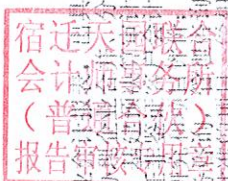 宿迁联合
会计师事务所
（普通合伙）
报告审核专用章